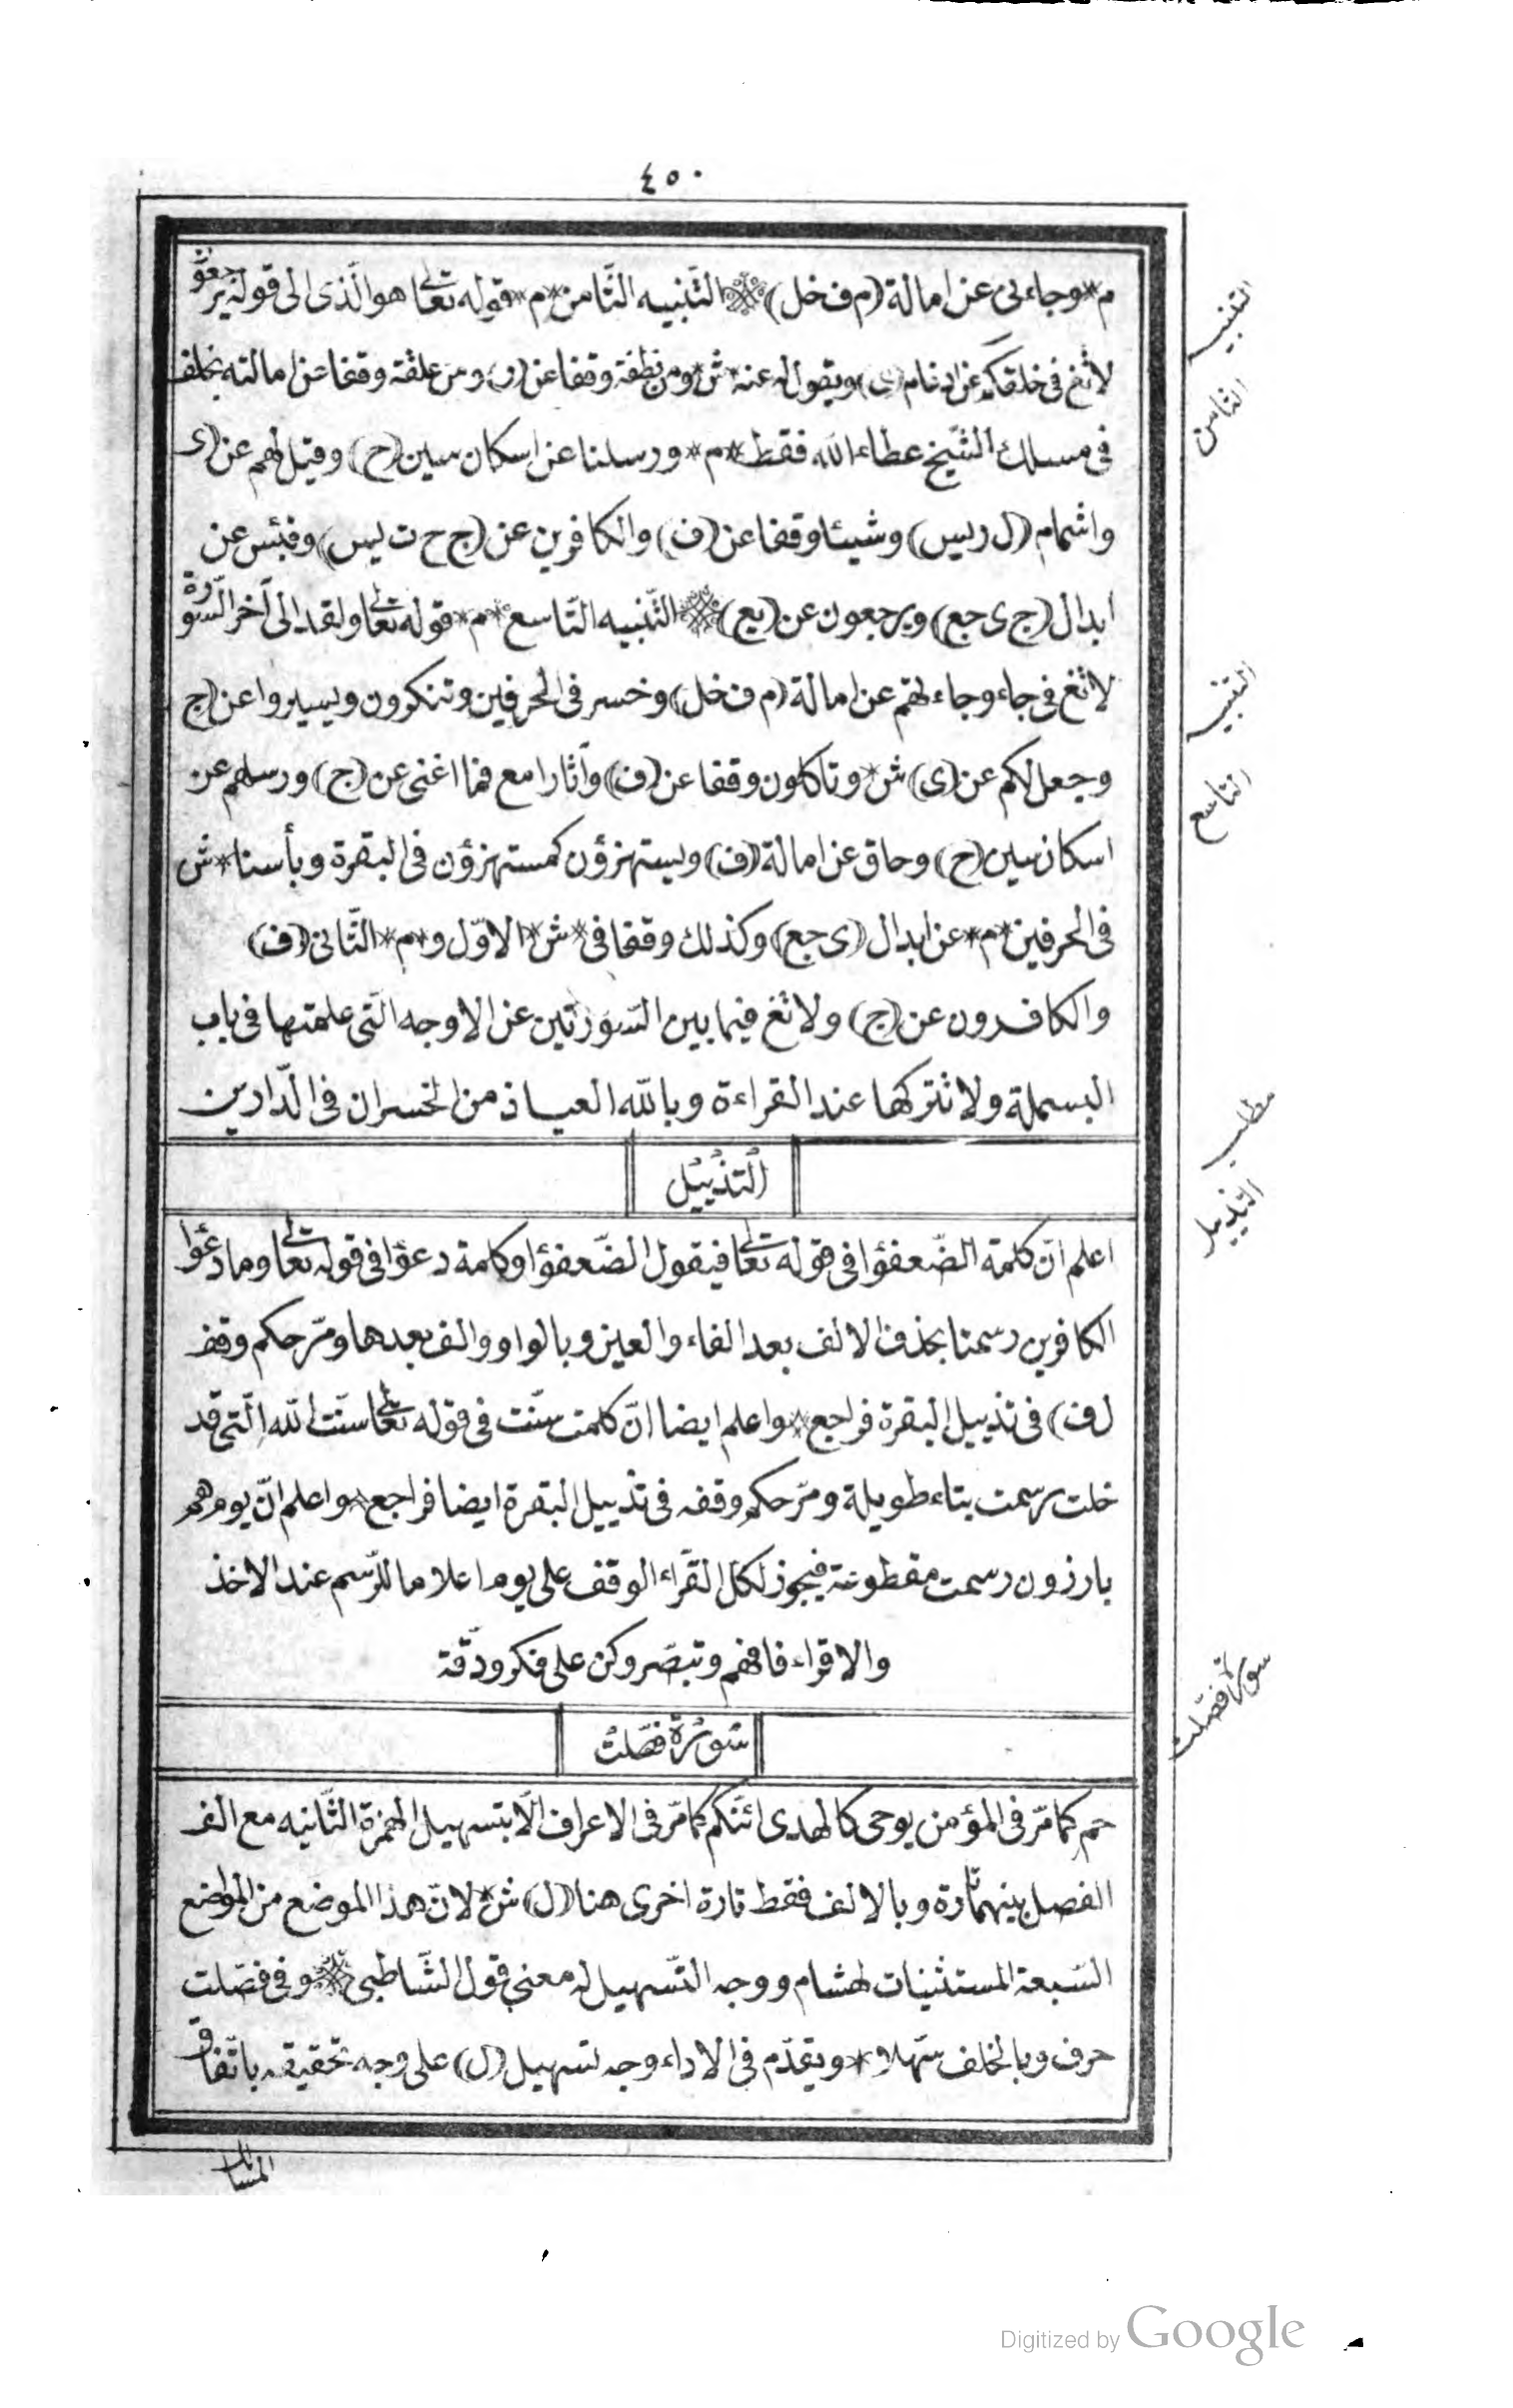 ٤٥٠
م * وجاءنى عن امالة (م ف خل) * التّنبيه الثّامن * م * قوله تعالى هو الّذى الى قوله يرجعون
لا تغ فى خلقكم عن ادغام (ى) ويقول له عنه * ش * ومن نطفة وقفا عن (ر) ومن علقة وقفا عن امالته بخلف
فى مسلك الشّيخ عطاء الله فقط * م * ورسلنا عن اسكان سين (ح) وقيل لهم عن (ى
واشمام (ل ر يس) وشيئا وقفا عن (ف) والكافرين عن (ج ح ت يس) وفبئس عن
ابدال (ج ى جع) ويرجعون عن (يع) * التّنبيه التّاسع * م * قوله تعالى ولقد الى آخر السّورة
لا تغ فى جاء وجاءتهم عن امالة (م ف خل) وخسر فى الحرفين وتنكرون ويسيروا عن (ج
وجعل لكم عن (ى) ش * وتاكلون وقفا عن (ف) وآثارا مع فما اغنى عن (ج) ورسلهم عن
اسكان سين (ح) وحاق عن امالة (ف) ويستهزؤن كمستهزؤن فى البقرة وبأسنا * ش
فى الحرفين * م * عن ابدال (ى جع) وكذلك وقفا فى * ش * الاوّل و * م * الثّانى (ف)
والكافرون عن (ج) ولا تغ فيما بين السّورتين عن الاوجه الّتى علمتها فى باب
البسملة ولا تتركها عند القراءة وبالله العياذ من الخسران فى الدّارين
التذييل
اعلم انّ كلمة الضّعفؤا فى قوله تعالى فيقول الضّعفؤا وكلمة دعؤا فى قوله تعالى وما دعؤا
الكافرين رسمتا بحذف الالف بعد الفاء والعين وبالواو والف بعدها ومرّ حكم وقف
ل ف) فى تذييل البقرة فراجع * واعلم ايضا انّ كلمت سنّت فى قوله تعالى سنّت الله الّتى قد
خلت رسمت بتاء طويلة ومرّ حكم وقفه فى تذييل البقرة ايضا فراجع * واعلم انّ يوم هم
بارزون رسمت مقطوعة فيجوز لكل القرّاء الوقف على يوم اعلاما للرّسم عند الاخذ
والاقراء فافهم وتبصّر وكن على فكر ودقّة
سورة فصّلت
حم كما مرّ فى المؤمن يوحى كالهدى ائنّكم كما مرّ فى الاعراف الّا بتسهيل الهمزة الثّانيه مع الف
الفصل بينهما تارة وبالالف فقط تارة اخرى هنا (ل) ش * لانّ هذا الموضع من المواضع
السّبعة المستثنيات لهشام ووجه التّسهيل له معنى قول الشّاطبى * وفى فصّلت
حرف وبالخلف سهّلا * ويقدّم فى الاداء وجه تسهيل (ل) على وجه تحقيقه باتّفاق
التنبيه
الثامن
التنبيه
التاسع
مطلب
التذييل
سورة فصّلت
Digitized by Google